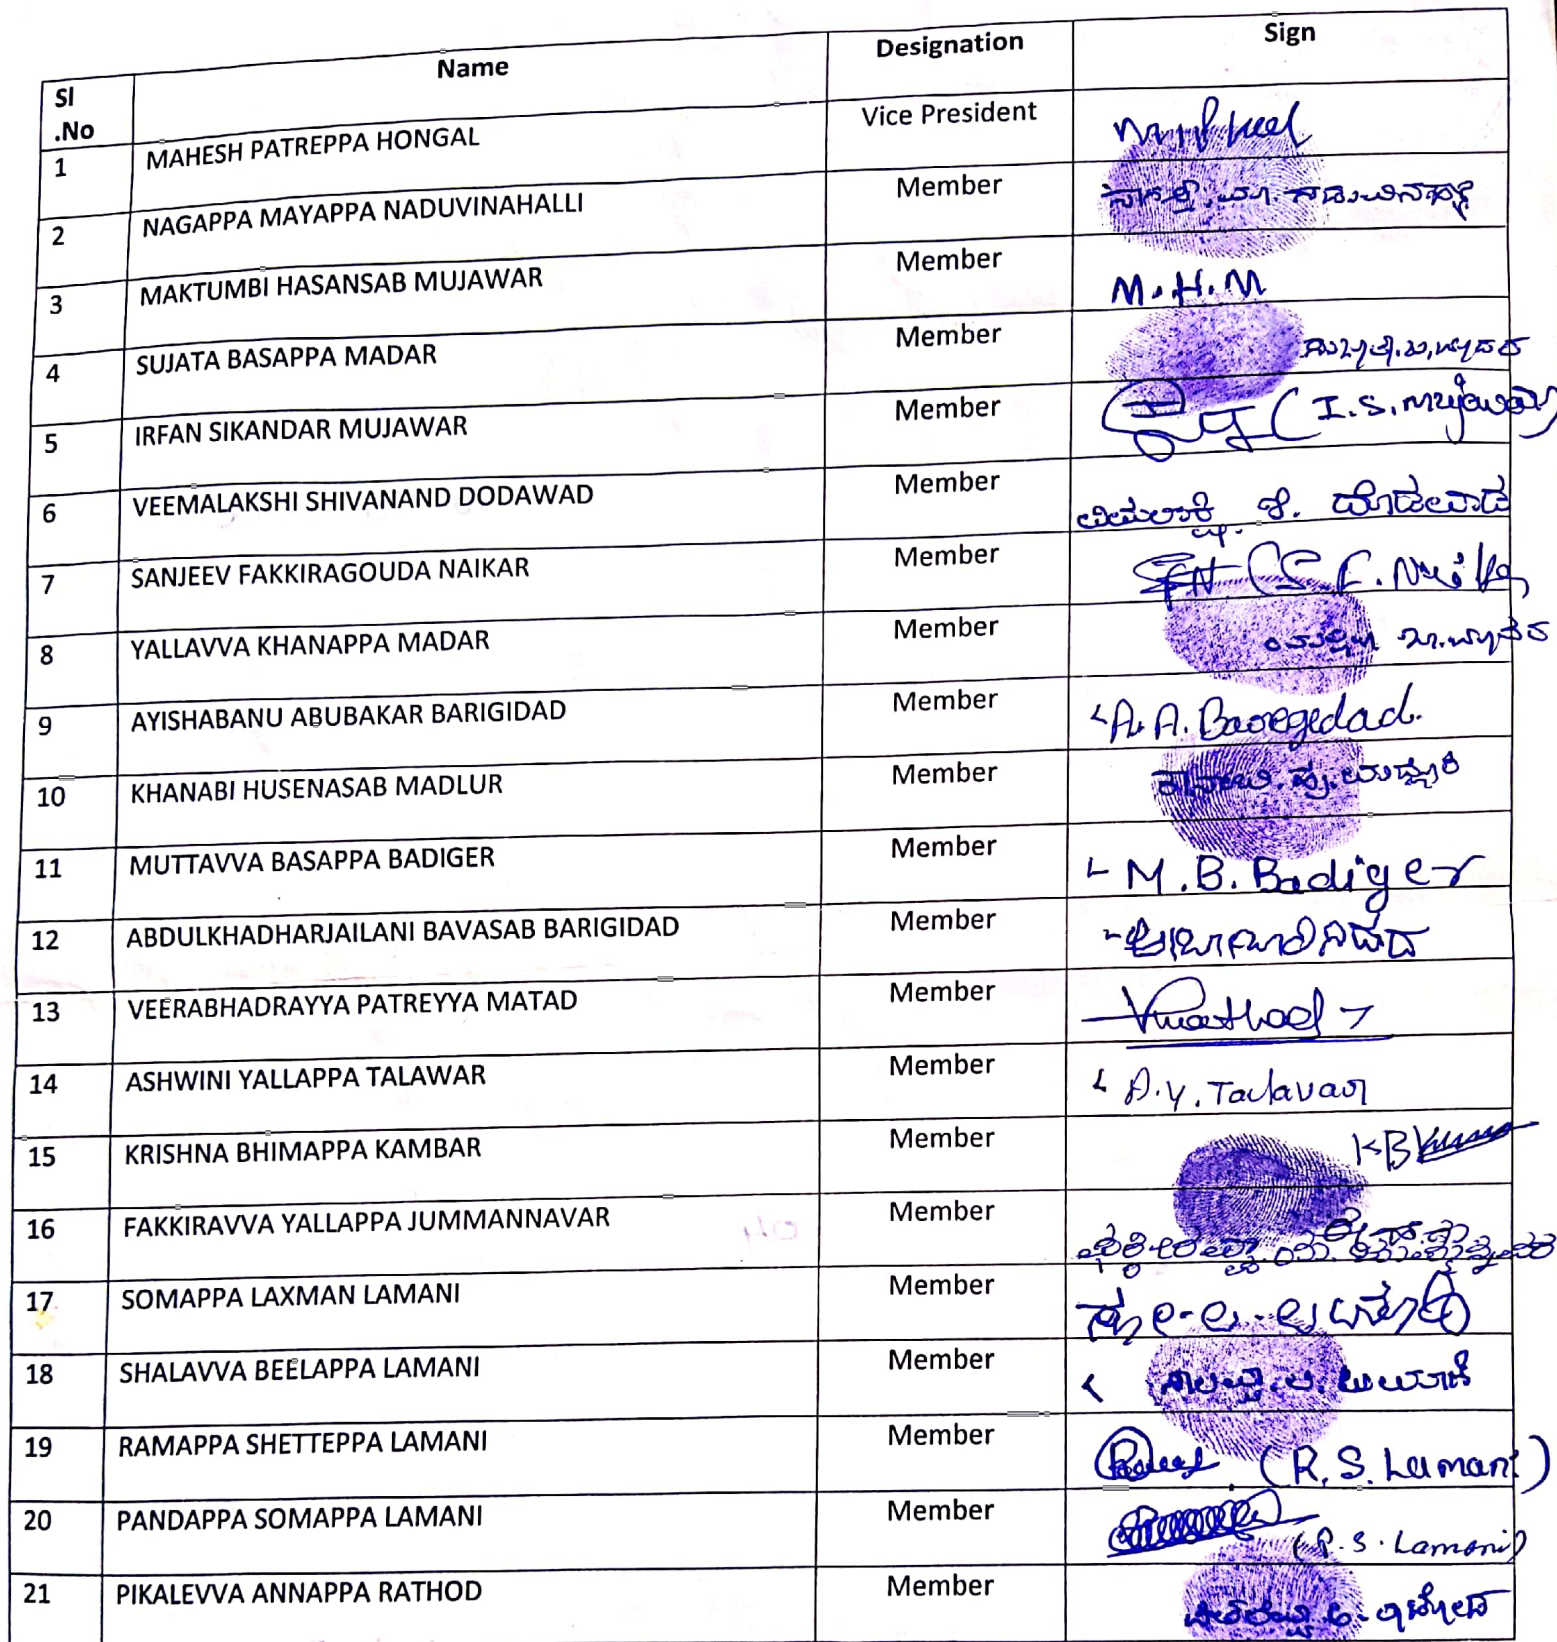 Sl .No Name Designation Sign
1 MAHESH PATREPPA HONGAL Vice President
2 NAGAPPA MAYAPPA NADUVINAHALLI Member
3 MAKTUMBI HASANSAB MUJAWAR Member M.H.M
4 SUJATA BASAPPA MADAR Member
5 IRFAN SIKANDAR MUJAWAR Member (I.S.Mujawar)
6 VEEMALAKSHI SHIVANAND DODAWAD Member
7 SANJEEV FAKKIRAGOUDA NAIKAR Member
8 YALLAVVA KHANAPPA MADAR Member
9 AYISHABANU ABUBAKAR BARIGIDAD Member A.A.Baregedad.
10 KHANABI HUSENASAB MADLUR Member
11 MUTTAVVA BASAPPA BADIGER Member M.B.Badiger
12 ABDULKHADHARJAILANI BAVASAB BARIGIDAD Member
13 VEERABHADRAYYA PATREYYA MATAD Member
14 ASHWINI YALLAPPA TALAWAR Member A.Y.Talavar
15 KRISHNA BHIMAPPA KAMBAR Member
16 FAKKIRAVVA YALLAPPA JUMMANNAVAR Member
17 SOMAPPA LAXMAN LAMANI Member
18 SHALAVVA BEELAPPA LAMANI Member
19 RAMAPPA SHETTEPPA LAMANI Member (R.S.Lamani)
20 PANDAPPA SOMAPPA LAMANI Member (P.S.Lamani)
21 PIKALEVVA ANNAPPA RATHOD Member